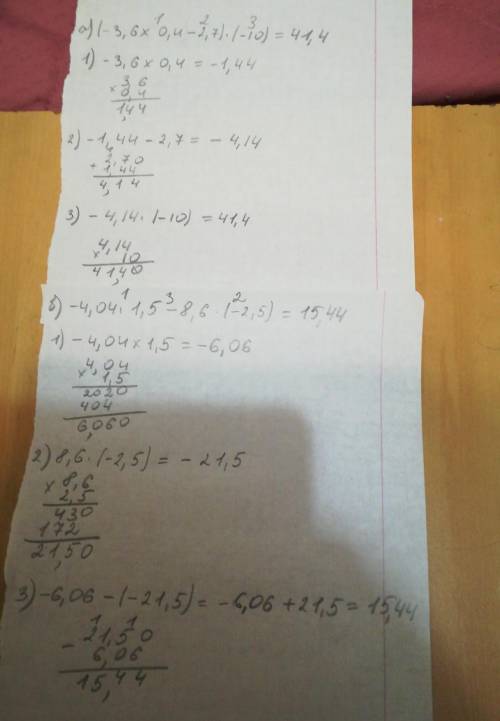 1 2 3
а) (-3,6 × 0,4 - 2,7) · (-10) = 41,4
1) -3,6 × 0,4 = -1,44
3 6
× 0,4
1,44
2) -1,44 - 2,7 = - 4,14
2,70
+ 1,44
4,14
3) - 4,14 · (-10) = 41,4
4,14
× 10
41,40
1 3 2
б) -4,04 · 1,5 - 8,6 · (-2,5) = 15,44
1) -4,04 × 1,5 = -6,06
4,04
× 1,5
2020
404
6,060
2) 8,6 · (-2,5) = - 21,5
× 8,6
2,5
430
172
21,50
3) -6,06 - (-21,5) = -6,06 + 21,5 = 15,44
1 1
- 21,50
6,06
15,44